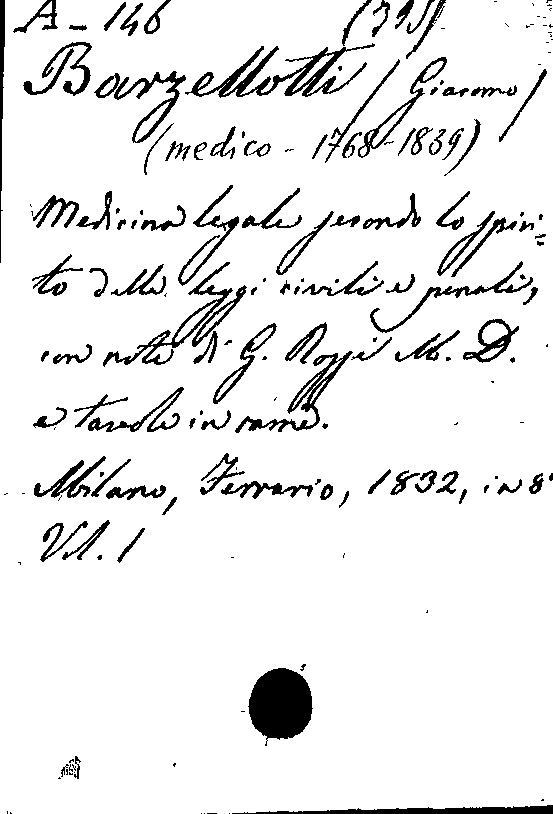 A - 146 (395)
Barzellotti / Giacomo /
(medico - 1768-1839)
Medicina legale secondo lo spiri=
to delle leggi civili e penali,
con note di G. Rossi M. D.
e tavole in rame.
Milano, Ferrario, 1832, in 8°
Vol. 1